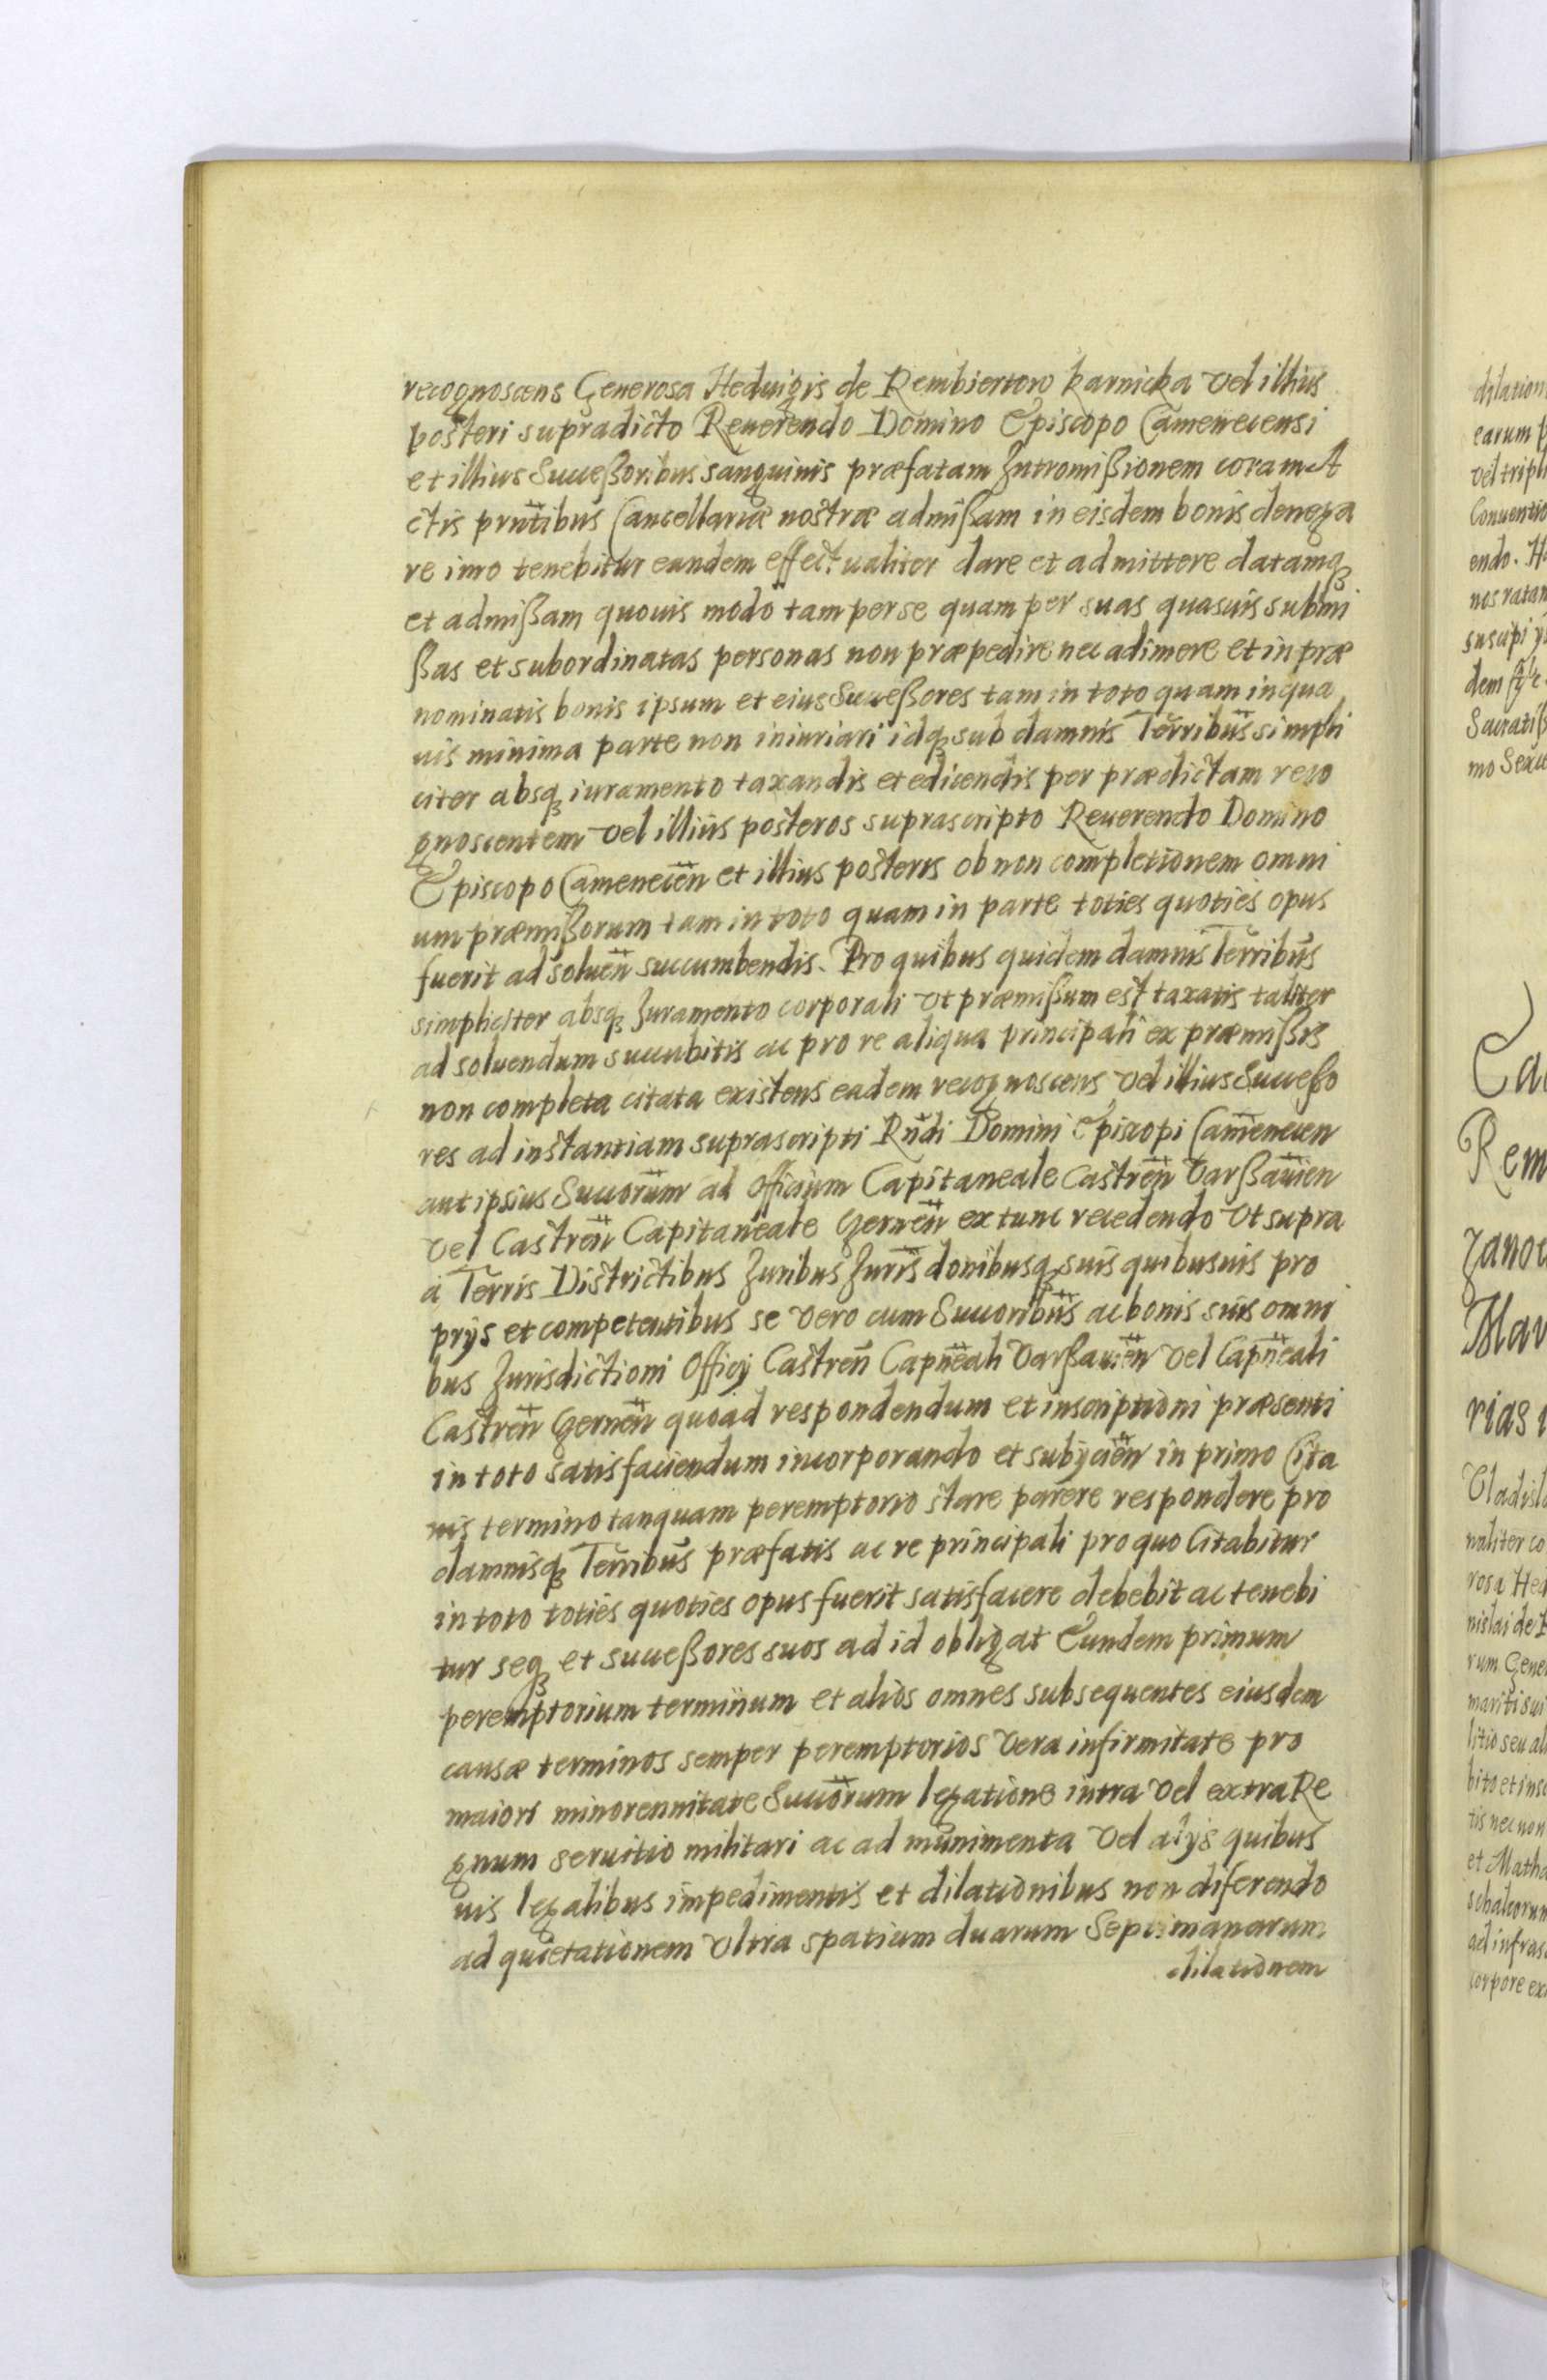 recognoscens Generosa Heduigis de Rembiertow karnicka vel illius
posteri supradicto Reuerendo Domino Episcopo Camenecensi
et illius Succeßoribus sanguinis præfatam Intromißionem coram A
ctis prñtibus Cancellariæ nostræ admißam in eisdem bonis denega
re imo tenebitur eandem effectualiter dare et admittere datamqꝫ
et admißam quouis modo tam per se quam per suas quasuis submi
ßas et subordinatas personas non præpedire nec adimere et in præ
nominatis bonis ipsum et eius Succeßores tam in toto quam in qua
uis minima parte non iniuriari idqꝫ sub damnis Terribus simpli
citer absqꝫ iuramento taxandis et edicendis per prædictam reco
gnoscentem vel illius posteros suprascripto Reuerendo Domino
Episcopo Camenecen̄ et illius posteris ob non completionem omni
um præmißorum tam in toto quam in parte toties quoties opus
fuerit ad soluen̄ succumbendis. Pro quibus quidem damnis Terribus
simpliciter absqꝫ Iuramento corporali vt præmißum est taxatis taliter
ad soluendum succubitis ac pro re aliqua principali ex præmißis
non completa citata existens eadem recognoscens vel illius Succeßo
res ad instantiam suprascripti Rndi Domini Episcopi Camenecen
aut ipsius Succorum ad Officium Capitaneale Castren̄ Varßauien
vel Castren̄ Capitaneale Gernen̄ ex tunc recedendo vt supra
a Terris Districtibus Iuribus Iurisdonibusqꝫ suis quibusuis pro
prys et competentibus se vero cum Succoribus ac bonis suis omni
bus Iurisdictioni Officy Castren̄ Capneali Varßauien̄ vel Capneali
Castren̄ Gernen̄ quoad respondendum et inscriptioni præsenti
in toto satisfaciendum incorporando et subycien̄ in primo Cita
nis termino tanquam peremptorio stare parere respondere pro
damnisqꝫ Terribus præfatis ac re principali pro quo Citabitur
in toto toties quoties opus fuerit satisfacere debebit ac tenebi
tur seqꝫ et succeßores suos ad id obligat Eundem primum
peremptorium terminum et alios omnes subsequentes eiusdem
causæ terminos semper peremptorios vera infirmitate pro
maiori minorennitate Succorum legatione intra vel extra Re
gnum seruitio militari ac ad munimenta vel alys quibus
uis legalibus impedimentis et dilationibus non diferendo
ad quietationem vltra spatium duarum Septimanarum
dilationem